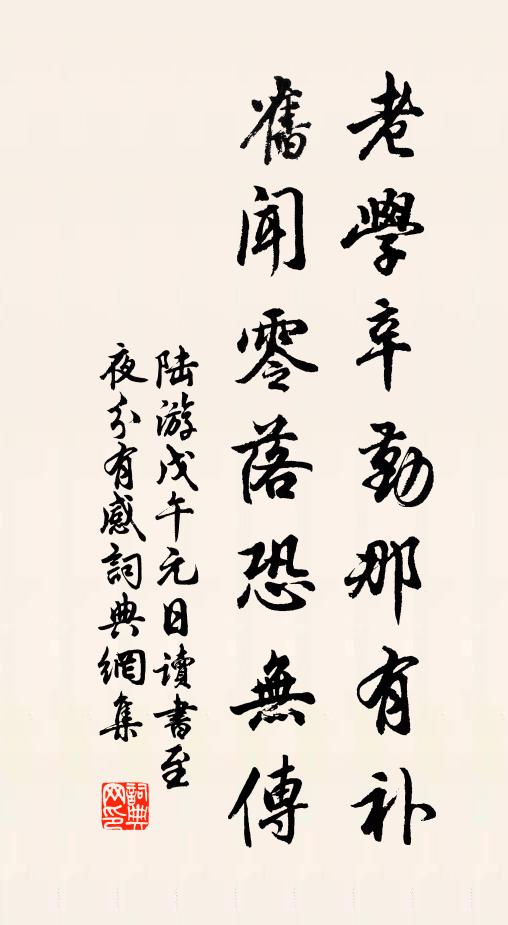 老學辛勤那有补
舊聞零落恐無傳
陸游戊午元日讀書至
夜分有感詞典網集
詞典
网印